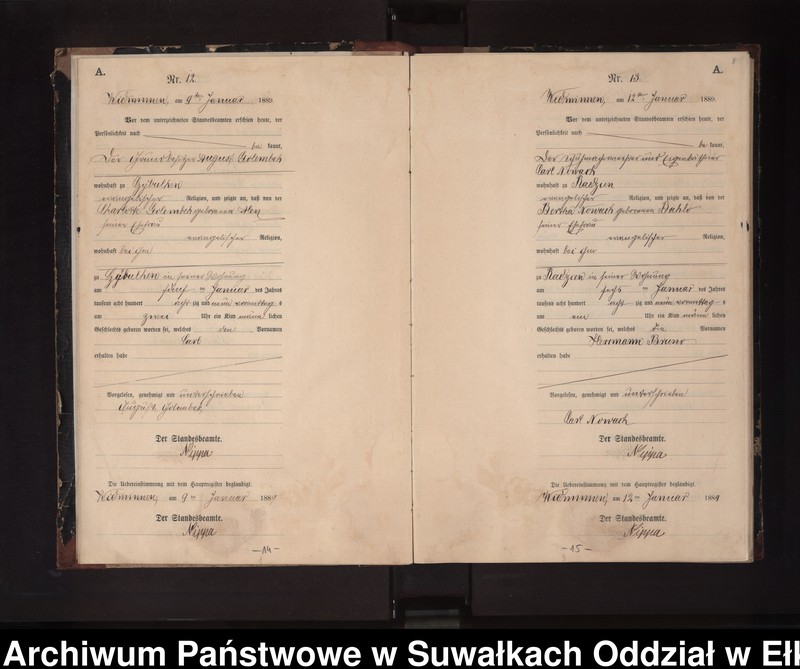 A.
Nr. 12.
Widminnen, am 9ten Januar 1889.
Vor dem unterzeichneten Standesbeamten erschien heute, der
Persönlichkeit nach
be kannt,
August Golembek
wohnhaft zu
evangelischer Religion, und zeigte an, daß von der
Golembek geborenen
seiner Ehefrau
evangelischer Religion,
wohnhaft bei ihm
zu in seiner Wohnung
am fünf ten Januar des Jahres
tausend acht hundert acht zig und neun vormittag s
am zwei Uhr ein Kind männ lichen
Geschlechts geboren worden sei, welches den Vornamen
Carl
erhalten habe
Vorgelesen, genehmigt und unterschrieben
August Golembek
Der Standesbeamte.
Nippa
Die Uebereinstimmung mit dem Hauptregister beglaubigt.
Widminnen, am 9ten Januar 1889
Der Standesbeamte.
Nippa
-14-
A.
Nr. 13.
Widminnen, am 12ten Januar 1889.
Vor dem unterzeichneten Standesbeamten erschien heute, der
Persönlichkeit nach
be kannt,
Der Schuhmachermeister und Eigenkäthner
Carl Nowack
wohnhaft zu Radzien
evangelischer Religion, und zeigte an, daß von der
Bertha Nowack geborenen Dahlo
seiner Ehefrau
evangelischer Religion,
wohnhaft bei ihm
zu Radzien in seiner Wohnung
am sechs ten Januar des Jahres
tausend acht hundert acht zig und neun vormittag s
am ein Uhr ein Kind männ lichen
Geschlechts geboren worden sei, welches die Vornamen
Hermann Bruno
erhalten habe
Vorgelesen, genehmigt und unterschrieben
Carl Nowack
Der Standesbeamte.
Nippa
Die Uebereinstimmung mit dem Hauptregister beglaubigt.
Widminnen, am 12ten Januar 1889
Der Standesbeamte.
Nippa
-15-
Archiwum Państwowe w Suwałkach Oddział w Eł